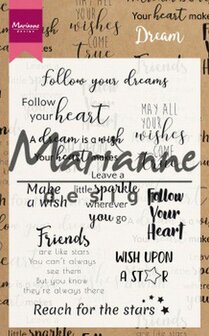 Marianne
DESIGN
Dream
Follow your dreams
Follow
your heart
MAY ALL
YOUR
wishes
COME
TRUE
A dream is a wish
Your heart makes
Marianne
Design
Leave a
little sparkle
wherever
you go
Make
a wish
Follow
Your
Heart
Friends
are like stars
You can't always
see them
But you know
they're always there
WISH UPON
A STAR
Reach for the stars